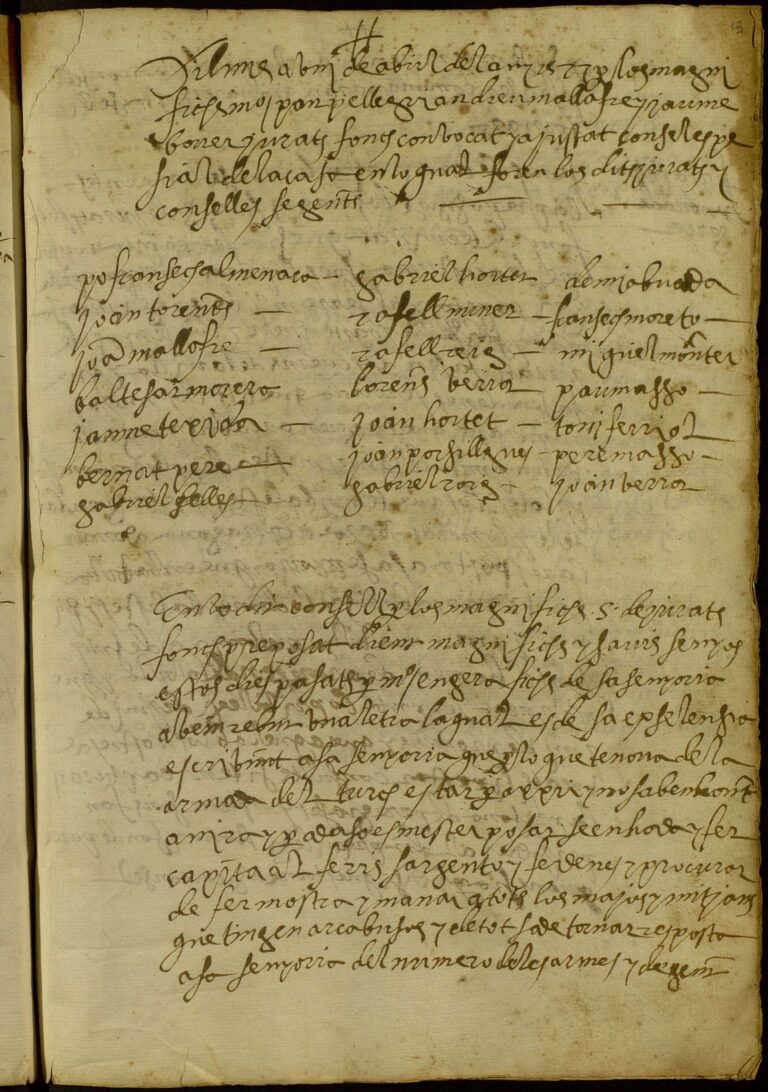 53
Dilluns a viij de abril del any 1577 per los magni
fichs mos pan pellegri andreu mallafre y jaume
bover jurats fonch convocat y ajustat consel espe
sial de la casa en lo qual foren los dits jurats y
consellés següents
po fransech almenara — gabriel hortet demia buada
joan torents — rafell miner — fransech moreto —
joã mallofre — rafell reig — miquel mõnter
baltesar morero lorens verrot pau masso —
jaume texidor — joan hortet — toni ferriol
bernat pere — joan porsillques — pere masso —
gabriel selles — gabriel roig — joan verrot
En lo dit consell per los magnifichs s. de jurats
fonch preposat dient magnifichs y savis senyos
estos dies pasats per mo engera fich de sa senyoria
abem rebut una letra la qual es de sa exselensia
escrivint a sa senyoria que per lo que te nova de la
armada del turch estar per a exir y no saben hont
anira y per ço es mester posar se en horde y fer
capita alferis sargento y fer denes y procurar
de fer mostra y manar q tots los majos y mitjans
que tingen arcabusos y de tot sa de tornar resposta
a sa senyoria del numero de les armes y de gent